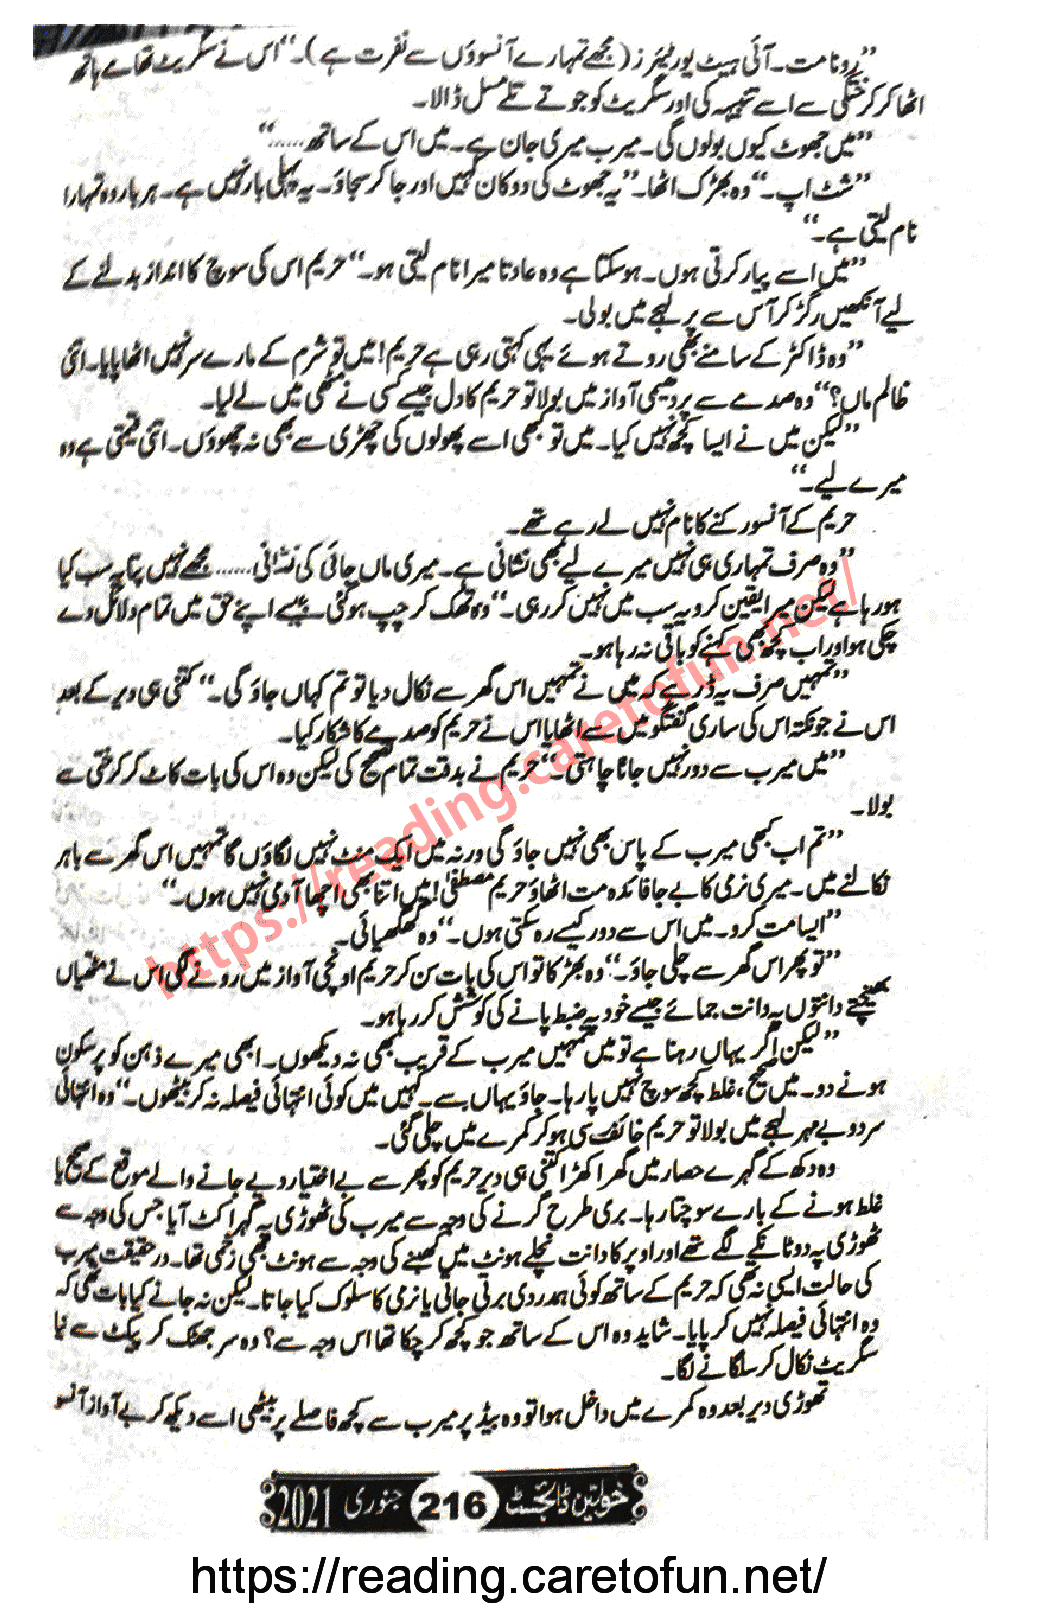 ”رونا مت۔ آئی ہیٹ یور ٹیئرز (مجھے تمہارے آنسوؤں سے نفرت ہے)۔“ اس نے سگریٹ تھامے ہاتھ
اٹھا کر کرختگی سے اسے تنبیہہ کی اور سگریٹ کو جوتے تلے مسل ڈالا۔
”میں جھوٹ کیوں بولوں گی۔ میرب میری جان ہے۔ میں اس کے ساتھ……“
”شٹ اپ۔“ وہ بھڑک اٹھا۔ ”یہ جھوٹ کی دوکان کہیں اور جا کر سجاؤ۔ یہ پہلی بار نہیں ہے۔ ہر بار وہ تمہارا
نام لیتی ہے۔“
”میں اسے پیار کرتی ہوں۔ ہو سکتا ہے وہ عادتا میرا نام لیتی ہو۔“ حریم اس کی سوچ کا انداز بدلنے کے
لیے آنکھیں رگڑ کر آس سے پر لہجے میں بولی۔
”وہ ڈاکٹر کے سامنے بھی روتے ہوئے یہی کہتی رہی ہے حریم! میں تو شرم کے مارے سر نہیں اٹھا پایا۔ اتنی
ظالم ماں؟“ وہ صدمے سے پر دھیمی آواز میں بولا تو حریم کا دل جیسے کسی نے مٹھی میں لے لیا۔
”لیکن میں نے ایسا کچھ نہیں کیا۔ میں تو کبھی اسے پھولوں کی چھڑی سے بھی نہ چھوؤں۔ اتنی قیمتی ہے وہ
میرے لیے۔“
حریم کے آنسو رکنے کا نام نہیں لے رہے تھے۔
”وہ صرف تمہاری ہی نہیں میرے لیے بھی نشانی ہے۔ میری ماں جائی کی نشانی…… مجھے نہیں پتا یہ سب کیا
ہو رہا ہے لیکن میرا یقین کرو یہ سب میں نہیں کر رہی۔“ وہ تھک کر چپ ہو گئی جیسے اپنے حق میں تمام دلائل دے
چکی ہو اور اب کچھ بھی کہنے کو باقی نہ رہا ہو۔
”تمہیں صرف یہ ڈر ہے کہ میں نے تمہیں اس گھر سے نکال دیا تو تم کہاں جاؤ گی۔“ کتنی ہی دیر کے بعد
اس نے جو نکتہ اس کی ساری گفتگو میں سے اٹھایا اس نے حریم کو صدمے کا شکار کیا۔
”میں میرب سے دور نہیں جانا چاہتی۔“ حریم نے بدقت تمام تصحیح کی لیکن وہ اس کی بات کاٹ کر کرختگی سے
بولا۔
”تم اب کبھی میرب کے پاس بھی نہیں جاؤ گی ورنہ میں ایک منٹ نہیں لگاؤں گا تمہیں اس گھر سے باہر
نکالنے میں۔ میری نرمی کا بے جا فائدہ مت اٹھاؤ حریم مصطفیٰ! میں اتنا بھی اچھا آدمی نہیں ہوں۔“
”ایسا مت کرو۔ میں اس سے دور کیسے رہ سکتی ہوں۔“ وہ گھگھیائی۔
”تو پھر اس گھر سے چلی جاؤ۔“ وہ بھڑکا تو اس کی بات سن کر حریم اونچی آواز میں رونے لگی اس نے مٹھیاں
بھینچتے دانتوں پہ دانت جمائے جیسے خود پہ ضبط پانے کی کوشش کر رہا ہو۔
”لیکن اگر یہاں رہنا ہے تو میں تمہیں میرب کے قریب بھی نہ دیکھوں۔ ابھی میرے ذہن کو پرسکون
ہونے دو۔ میں صحیح، غلط کچھ سوچ نہیں پا رہا۔ جاؤ یہاں سے۔ کہیں میں کوئی انتہائی فیصلہ نہ کر بیٹھوں۔“ وہ انتہائی
سرد و بے مہر لہجے میں بولا تو حریم خائف سی ہو کر کمرے میں چلی گئی۔
وہ دکھ کے گہرے حصار میں گھرا کھڑا کتنی ہی دیر حریم کو پھر سے بے اختیار دیے جانے والے موقع کے صحیح یا
غلط ہونے کے بارے سوچتا رہا۔ بری طرح گرنے کی وجہ سے میرب کی ٹھوڑی پہ گہرا کٹ آیا جس کی وجہ سے
ٹھوڑی پہ دو ٹانکے لگے تھے اور اوپر کا دانت نچلے ہونٹ میں کھبنے کی وجہ سے ہونٹ بھی زخمی تھا۔ در حقیقت میرب
کی حالت ایسی نہ تھی کہ حریم کے ساتھ کوئی ہمدردی برتی جاتی یا نرمی کا سلوک کیا جاتا۔ لیکن نہ جانے کیا بات تھی کہ
وہ انتہائی فیصلہ نہیں کر پایا۔ شاید وہ اس کے ساتھ جو کچھ کر چکا تھا اس وجہ سے؟ وہ سر جھٹک کر پیکٹ سے نیا
سگریٹ نکال کر سلگانے لگا۔
تھوڑی دیر بعد وہ کمرے میں داخل ہوا تو وہ بیڈ پر میرب سے کچھ فاصلے پر بیٹھی اسے دیکھ کر بے آواز آنسو
خواتین ڈائجسٹ 216 جنوری 2021
https://reading.caretofun.net/
https://reading.caretofun.net/